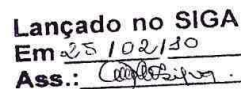 Lançado no SIGA
Em 25/02/30
Ass.: